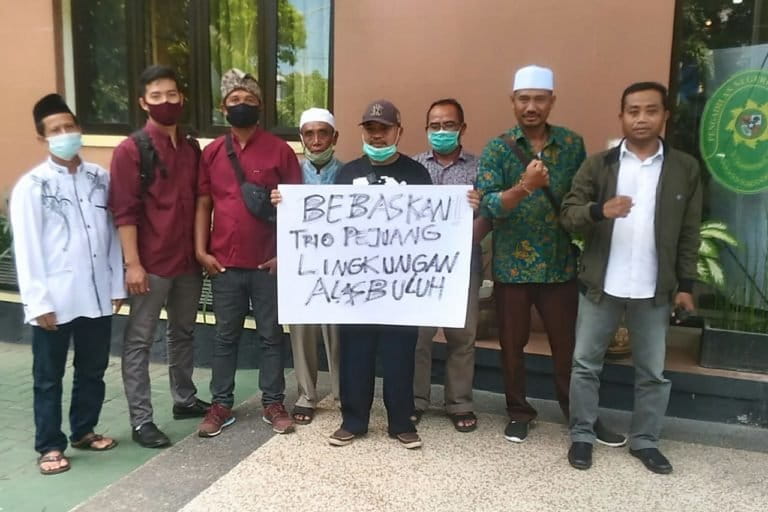 BEBASKAN!!
TRIO PEJUANG
LINGKUNGAN
ALASBULUH
PENGADILAN NEGERI